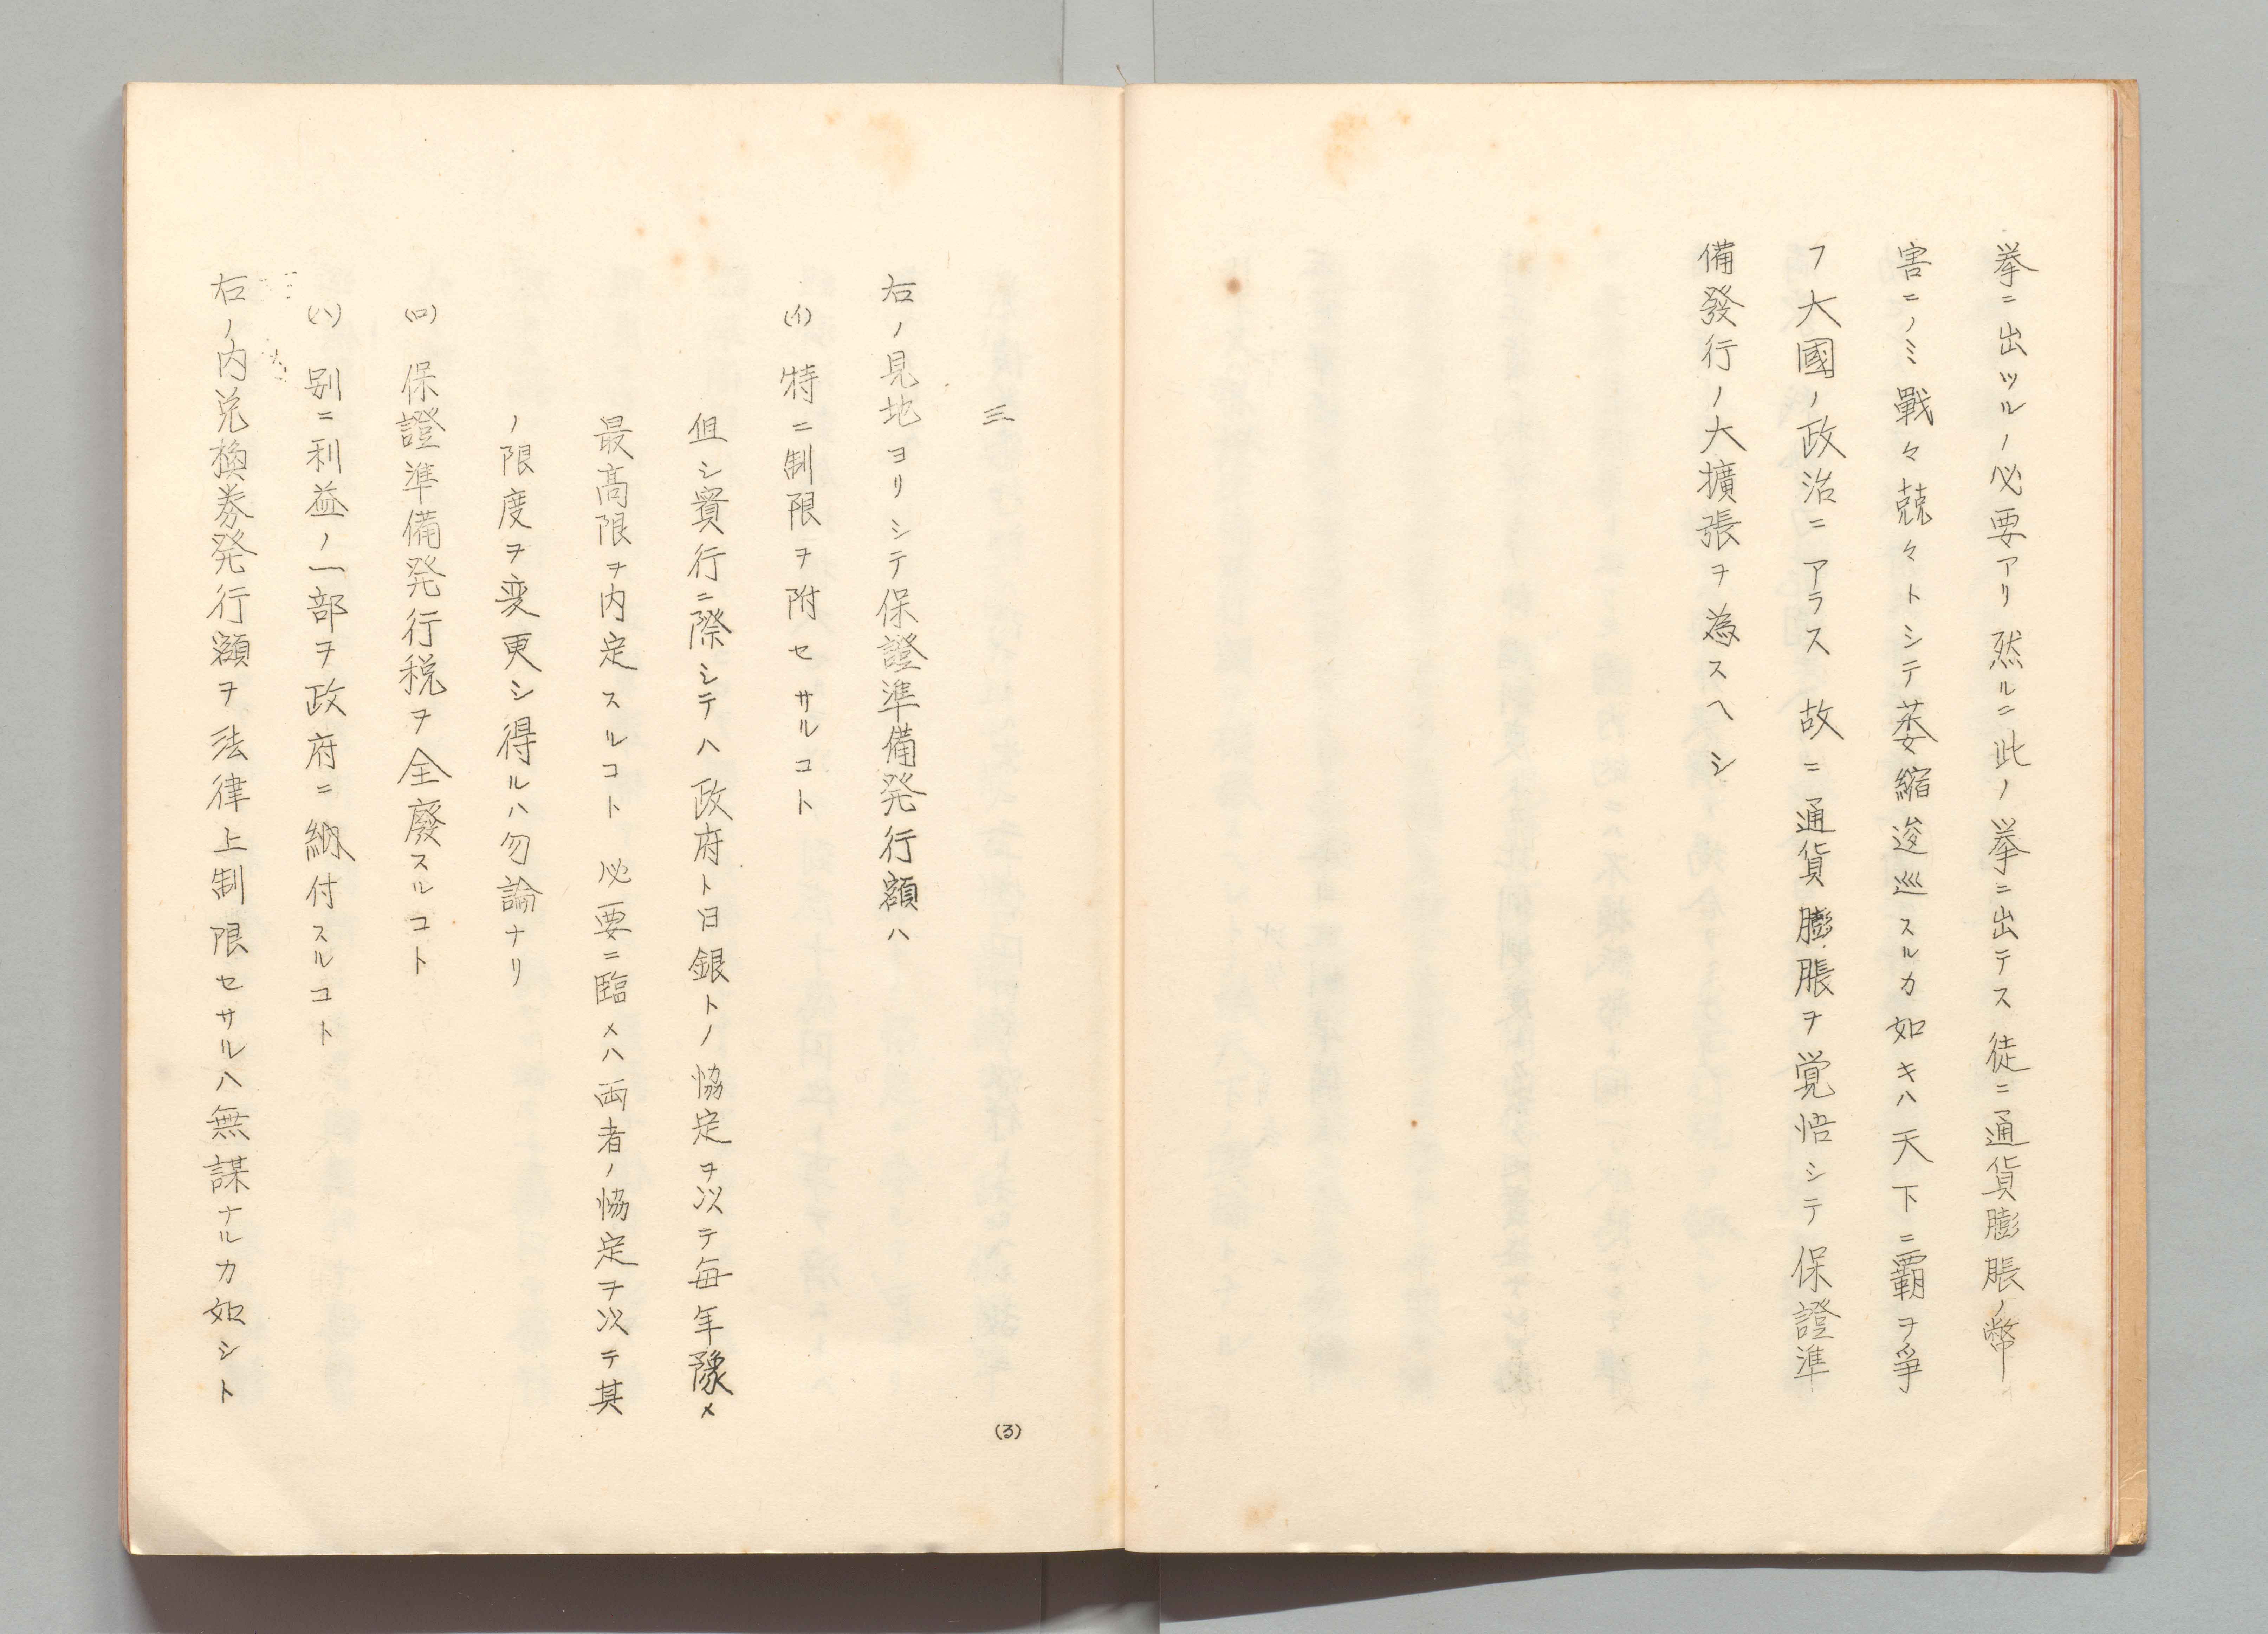 挙ニ出ツルノ必要アリ然ルニ此ノ挙ニ出テス徒ニ通貨膨脹ノ幣
害ニノミ戰々兢々トシテ萎縮逡巡スルカ如キハ天下ニ覇ヲ爭
フ大國ノ政治ニアラス故ニ通貨膨脹ヲ覚悟シテ保證準
備發行ノ大擴張ヲ為スヘシ
三
右ノ見地ヨリシテ保證準備発行額ハ
(イ) 特ニ制限ヲ附セサルコト
但シ實行ニ際シテハ政府ト日銀トノ協定ヲ以テ毎年豫メ
最高限ヲ内定スルコト 必要ニ臨メハ両者ノ協定ヲ以テ其
ノ限度ヲ変更シ得ルハ勿論ナリ
(ロ) 保證準備発行税ヲ全廢スルコト
(ハ) 別ニ利益ノ一部ヲ政府ニ納付スルコト
右ノ内兌換券発行額ヲ法律上制限セサルハ無謀ナルカ如シト
(3)